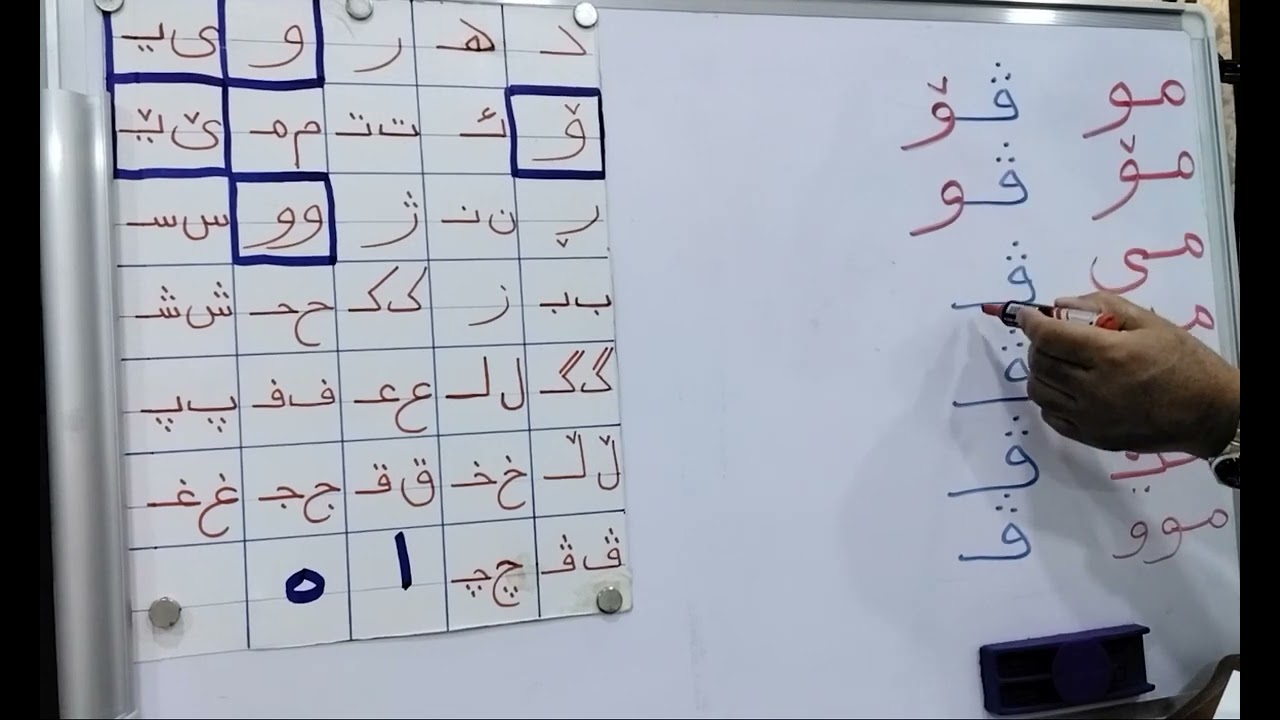 مو
مۆ
می
موو
ڤۆ
ڤو
ڤـ
ڤـ
ڤـ
ڤـ
د هـ ر و ی یـ
ۆ ئـ ت تـ م مـ ێ ێـ
ڕ ن نـ ژ وو س سـ
ب بـ ز ک کـ ح حـ ش شـ
گ گـ ل لـ ع عـ ف فـ پ پـ
ڵ ڵـ خ خـ ق قـ ج جـ غ غـ
ڤ ڤـ چ چـ ا ە